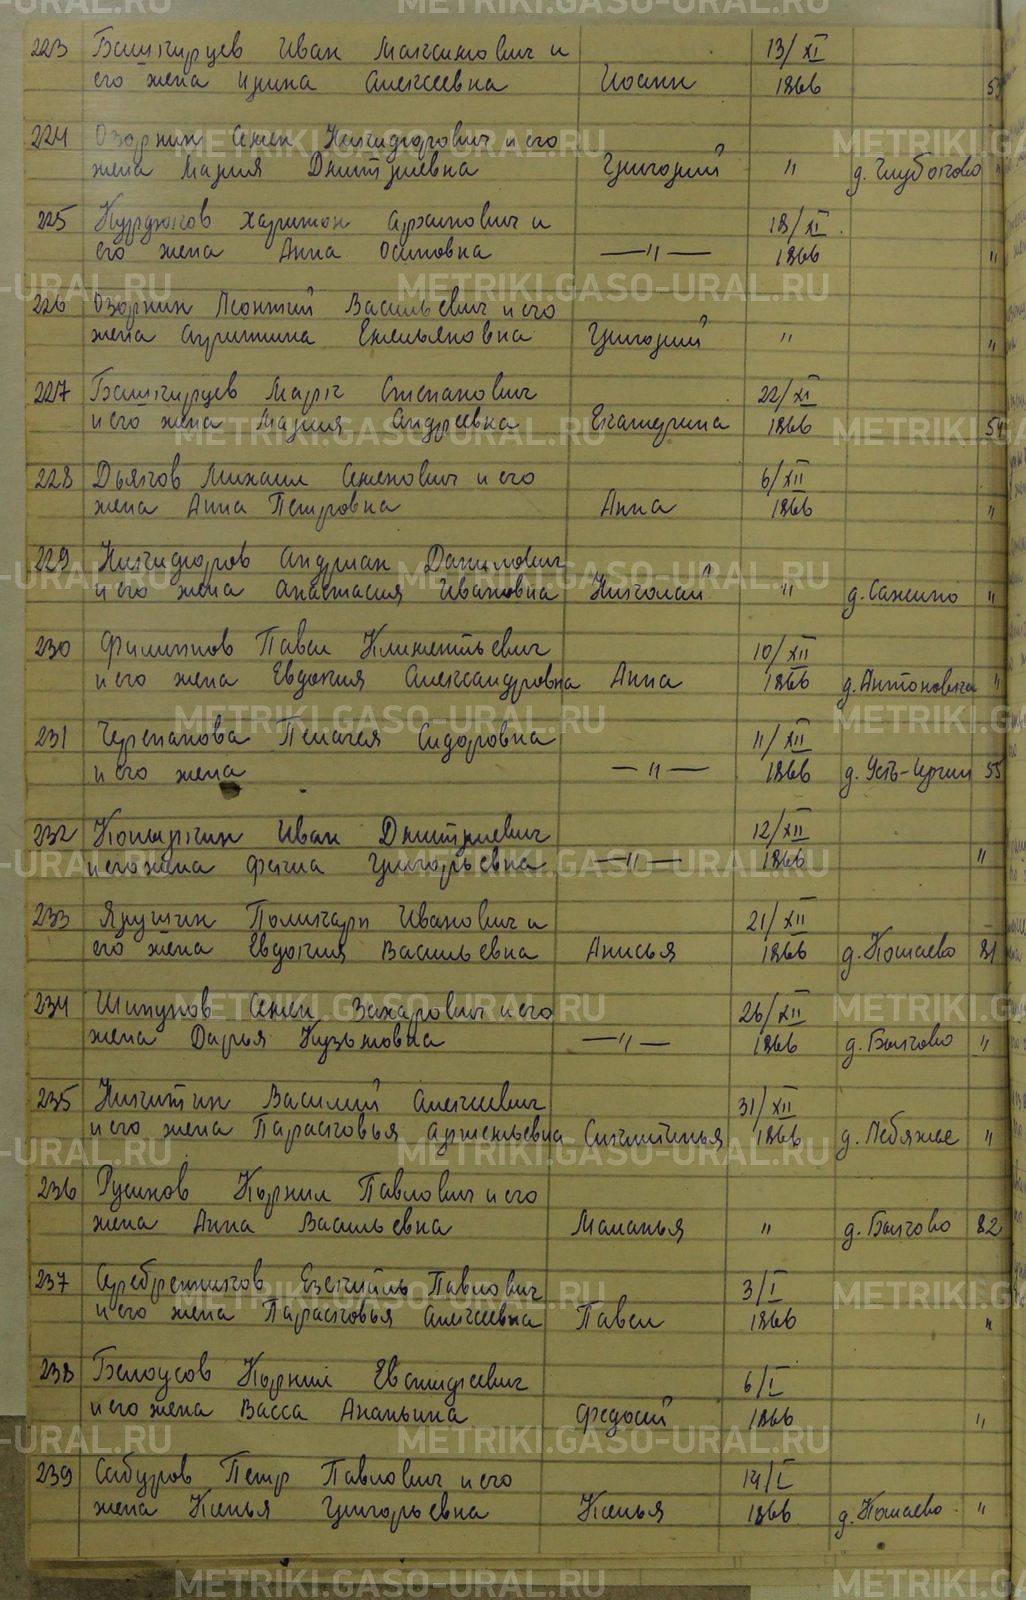 223 Башкирцев Иван Максимович и 13/XI
его жена Ирина Алексеевна Иоанн 1866 53
224 Озорнин Семен Никифорович и его
жена Мария Дмитриевна Григорий " д. Глубоково "
225 Курдюков Харитон Архипович и 18/XI.
его жена Анна Осиповна —"— 1866 "
226 Озорнин Леонтий Васильевич и его
жена Агрипина Емельяновна Григорий " "
227 Башкирцев Марк Степанович 22/XI
и его жена Мария Андреевна Екатерина 1866 54
228 Дьяков Михаил Семенович и его 6/XII
жена Анна Петровна Анна 1866 "
229 Никифоров Андриан Данилович
и его жена Анастасия Ивановна Николай " д. Сажино "
230 Филиппов Павел Климентьевич 10/XII
и его жена Евдокия Александровна Анна 1866 д. Антоновка "
231 Черепанова Пелагея Сидоровна 11/XII
и его жена —"— 1866 д. Усть-Иргин 55
232 Иван Дмитриевич 12/XII
и его жена Фекла Григорьевна —"— 1866 "
233 Якушин Поликарп Иванович и 21/XII
его жена Евдокия Васильевна Анисья 1866 д. Кошаево 81
234 Шипунов Семен Захарович и его 26/XII
жена Дарья Кузьмовна —"— 1866 д. Быково "
235 Никитин Василий Алексеевич 31/XII
и его жена Парасковья Артемьевна 1866 д. Лебяжье "
236 Русинов Корнил Павлович и его
жена Анна Васильевна Маланья " д. Быково 82
237 Серебренников Езекииль Павлович 3/I
и его жена Парасковья Алексеевна Павел 1866 "
238 Белоусов Корнил Евстифеевич 6/I
и его жена Васса Ананьина Федосий 1866 "
239 Сабуров Петр Павлович и его 14/I
жена Ксенья Григорьевна Ксенья 1866 д. Кошаево. "
METRIKI.GASO-URAL.RU